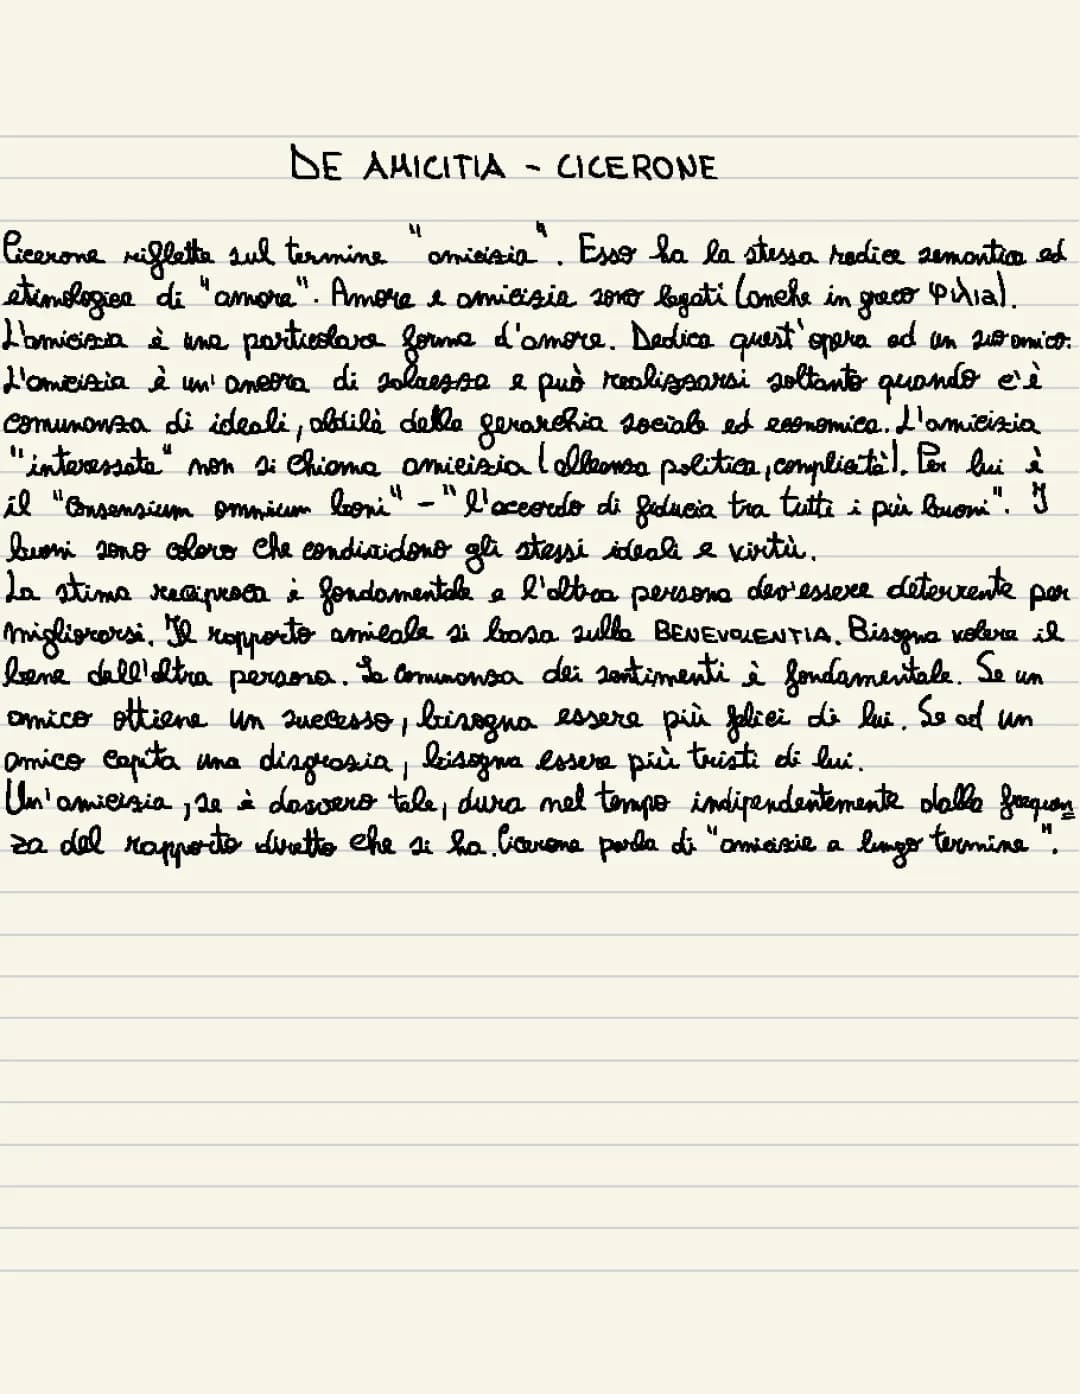 DE AMICITIA - CICERONE
Cicerone riflette sul termine "amicizia". Esso ha la stessa radice semantica ed
etimologica di "amore". Amore e amicizia sono legati (anche in greco φιλία).
L'amicizia è una particolare forma d'amore. Dedica quest'opera ad un suo amico.
L'amicizia è un'ancora di salvezza e può realizzarsi soltanto quando c'è
comunanza di ideali, aldilà della gerarchia sociale ed economica. L'amicizia
"interessata" non si chiama amicizia (alleanza politica, complicità). Per lui è
il "Consensium omnium boni" - "l'accordo di fiducia tra tutti i più buoni". I
buoni sono coloro che condividono gli stessi ideali e virtù.
La stima reciproca è fondamentale e l'altra persona dev'essere deterrente per
migliorarsi. Il rapporto amicale si basa sulla BENEVOLENTIA. Bisogna volere il
bene dell'altra persona. La comunanza dei sentimenti è fondamentale. Se un
amico ottiene un successo, bisogna essere più felici di lui. Se ad un
amico capita una disgrazia, bisogna essere più tristi di lui.
Un'amicizia, se è davvero tale, dura nel tempo indipendentemente dalla frequen
za del rapporto diretto che si ha. Cicerone parla di "amicizie a lungo termine".